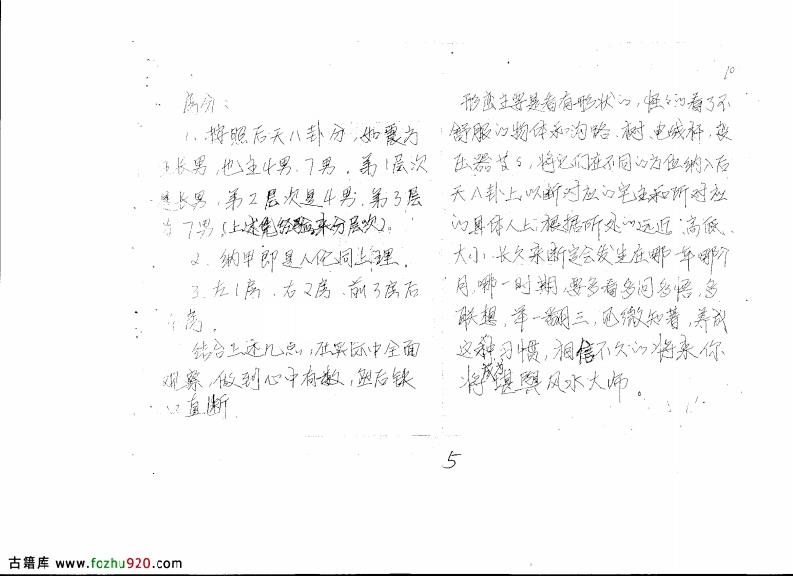 房分：
1、按照后天八卦分，如震为
长男，也主4男、7男，第1层次
是长男，第2层次是4男，第3层
7男（上述凭经验来分层次）。
2、纳甲即是人化同上理。
3、左1房，右2房，前3房后
房。
结合上述几点，在实际中全面
观察，做到心中有数，然后铁
口直断
10
形峦主要是看有形状的，怪怪的看了不
舒服的物体和沟路、树、电线杆，变
压器等等，将它们在不同的方位纳入后
天八卦上，以断对应的宅主和所对应
的具体人上，根据所处的远近、高低、
大小、长久来断定会发生在哪一年哪个
月，哪一时期，要多看多问多悟，多
联想，举一翻三，见微知著，养成
这种习惯，相信不久的将来你
将成为堪舆风水大师。
5
古籍库 www.fozhu920.com